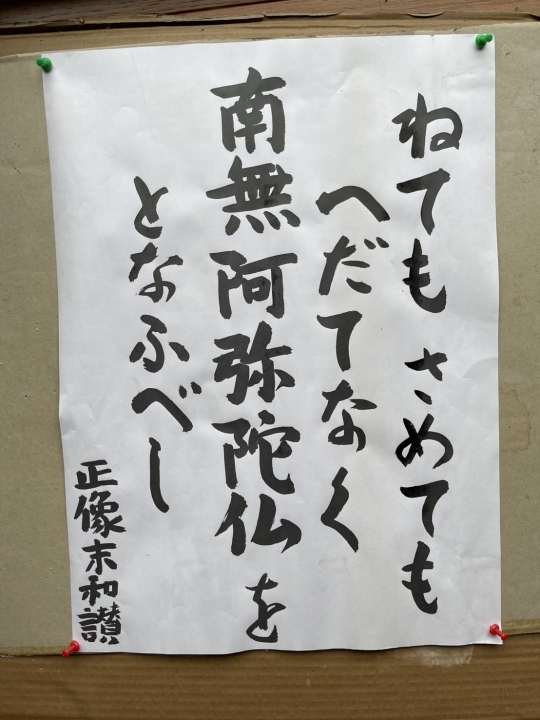 ねても さめても
へだてなく
南無阿弥陀仏を
となふべし
正像末和讃